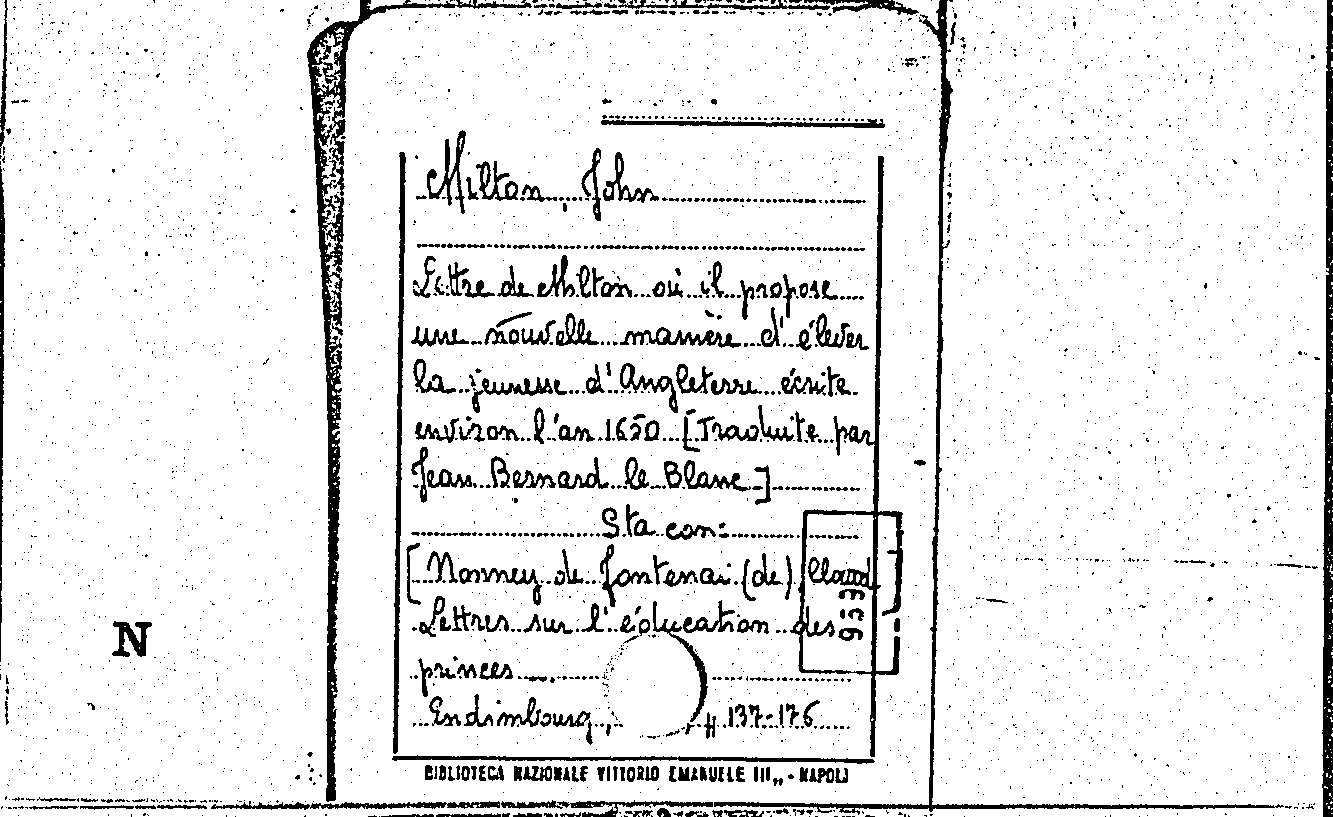 Milton, John
Lettre de Milton où il propose
une nouvelle manière d'élever
la jeunesse d'Angleterre écrite
environ l'an 1650 [Traduite par
Jean Bernard le Blanc]
Sta con:
[Nonney de Fontenai (de), Claud
Lettres sur l'éducation des
princes
Endimbourg, 137-176
BIBLIOTECA NAZIONALE VITTORIO EMANUELE III,, - NAPOLI
N